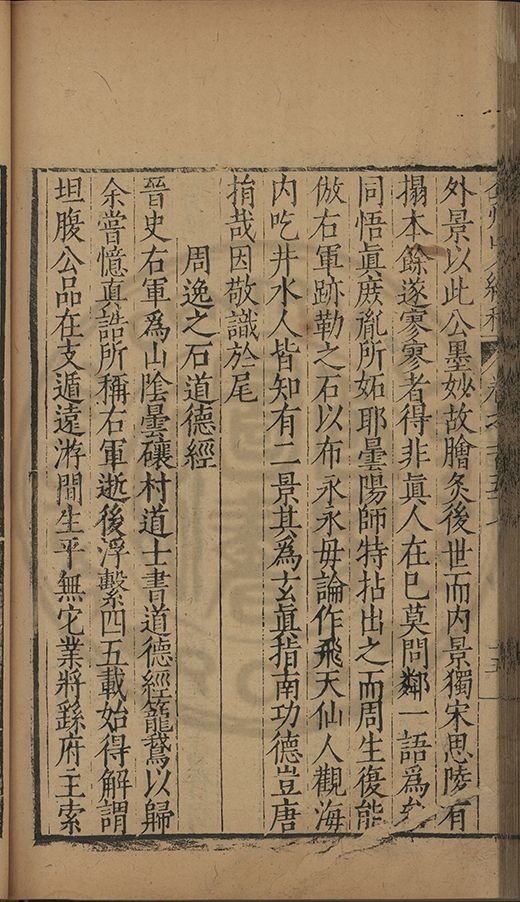 外景以此公墨妙故膾炙後世而内景獨宋思陵有
搨本餘遂寥寥者得非眞人在巳莫問鄰一語爲
同悟眞庶胤所妬耶曇陽師特拈出之而周生復能
倣右軍跡勒之石以布永永毋論作飛天仙人觀海
内吃井水人皆知有二景其爲玄眞指南功德豈唐
捐哉因敬識於尾
周逸之石道德經
晉史右軍爲山陰曇𥖎村道士書道德經籠鵞以歸
余嘗憶真誥所稱右軍逝後浮繫四五載始得解謂
坦腹公品在支遁遠游間生平無它業將繇府主索